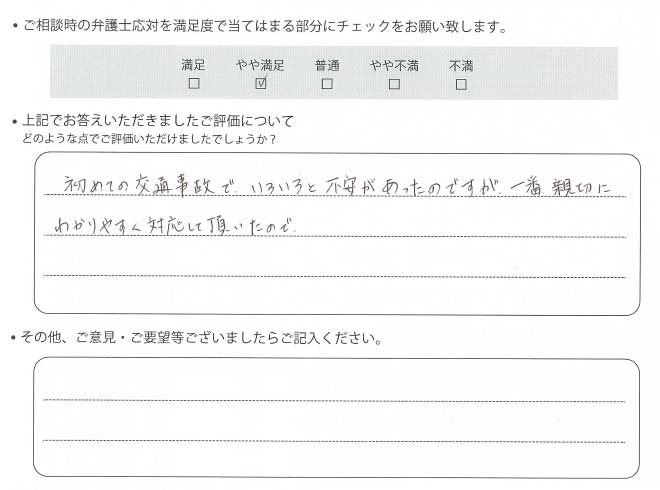 • ご相談時の弁護士応対を満足度で当てはまる部分にチェックをお願い致します。
満足 やや満足 普通 やや不満 不満
☐ ☑ ☐ ☐ ☐
• 上記でお答えいただきましたご評価について
どのような点でご評価いただけましたでしょうか？
初めての交通事故で、いろいろと不安があったのですが、一番親切に
わかりやすく対応して頂いたので。
• その他、ご意見・ご要望等ございましたらご記入ください。